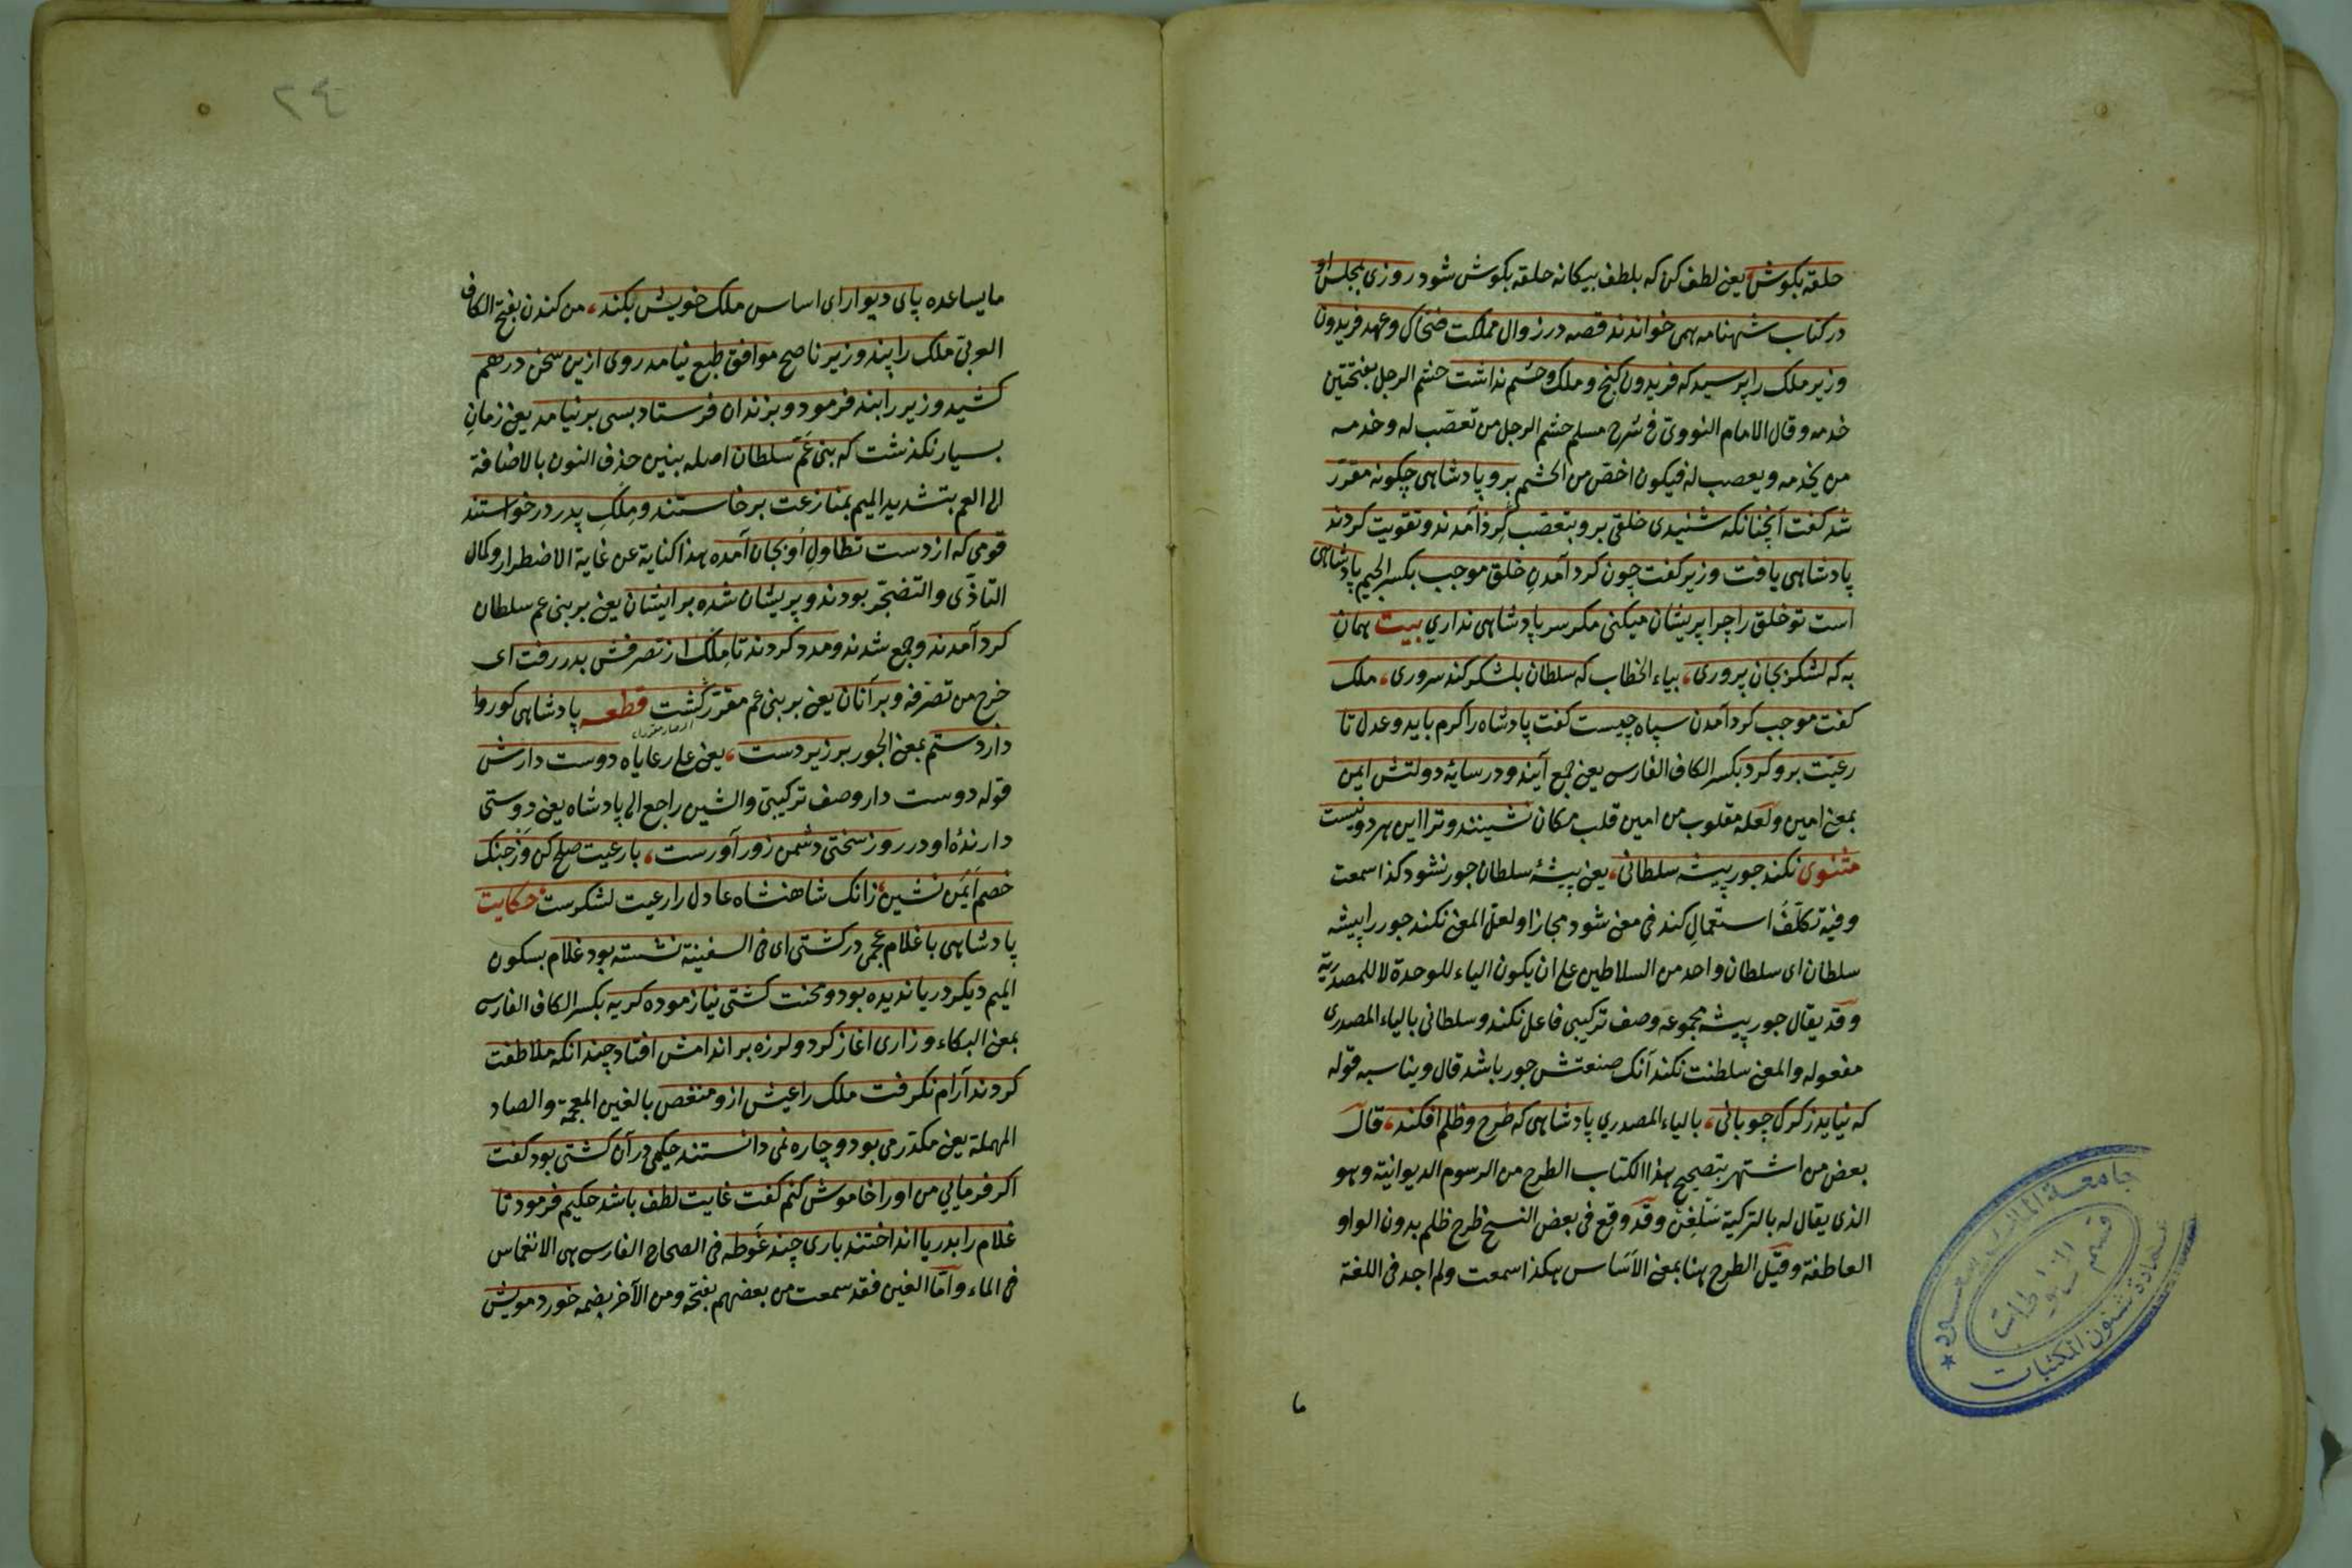 حلقه بكوش يعنى لطف كن كه بلطف بيكانه حلقه بكوش شود روزى بمجلس او
در كتاب شهنامه همى خواندند قصه در زوال مملكت ضحاك وعهد فريدون
وزير ملك را پرسيد كه فريدون كنج وملك وحشم نداشت حشم الرجل بفتحتين
خدمه وقال الامام النووى فى شرح مسلم حشم الرجل من تعصب له وخدمه
من يخدمه ويعصب له فيكون اخص من الحشم برو پادشاهى چكونه مقرر
شد كفت آنچنانكه شنيدى خلقى برو بتعصب كرد آمدند وتقويت كردند
پادشاهى يافت وزير كفت چون كرد آمدن خلق موجب بكسر الجيم پادشاهى
است تو خلق را چرا پريشان ميكنى مكر سر پادشاهى ندارى بيت همان
به كه لشكر بجان پرورى، بياء الخطاب كه سلطان بلشكر كند سرورى، ملك
كفت موجب كرد آمدن سپاه چيست كفت پادشاه را كرم بايد وعدل تا
رعيت برو كرد بكسر الكاف الفارسى يعنى جمع آيند ودر سايۀ دولتش ايمن
بمعنى امين ولعله مقلوب من امين قلب مكان نشينند وترا اين هر دو نيست
مثنوى نكند جور پيشه سلطانى، يعنى پيشۀ سلطان جور نشود كذا سمعت
وفيه تكلف استعمال كند فى معنى شود مجازا ولعل المعنى نكند جور را پيشه
سلطان اى سلطان واحد من السلاطين على ان يكون الياء للوحدة لا للمصدرية
وقد يقال جور پيشه مجموعه وصف تركيبى فاعل نكند وسلطانى بالياء المصدرى
مفعوله والمعنى سلطنت نكند آنك صنعتش جور باشد قال ويناسبه قوله
كه نيايد ز كرك چوپانى، بالياء المصدري پادشاهى كه طرح وظلم افكند، قال
بعض من اشتهر بتصحيح هذا الكتاب الطرح من الرسوم الديوانية وهو
الذى يقال له بالتركية سلغن وقد وقع فى بعض النسخ طرح ظلم بدون الواو
العاطفة وقيل الطرح هنا بمعنى الاساس هكذا سمعت ولم اجد فى اللغة
ما
جامعة الملك سعود
عمادة شئون المكتبات
قسم المخطوطات
٢٤
ما يساعده پاى ديوار اى اساس ملك خويش بكند، من كندن بفتح الكاف
العربى ملك را پند وزير ناصح موافق طبع نيامد روى ازين سخن درهم
كشيد وزير را بند فرمود وبزندان فرستاد بسى برنيامد يعنى زمان
بسيار نكذشت كه بنى عم سلطان اصله بنين حذف النون بالاضافة
الى العم بتشديد الميم بمنازعت برخاستند وملك پدر درخواستند
قومى كه از دست تطاول او بجان آمده هذا كناية عن غاية الاضطرار وكمال
التاذى والتضجر بودند وپريشان شده برايشان يعنى بر بنى عم سلطان
كرد آمدند وجمع شدند ومدد كردند تا ملك از تصرفش بدر رفت اى
خرج من تصرفه وبر آنان يعنى بر بنى عم مقرر كشت قطعه پادشاهى كو روا
دارد ستم بمعنى الجور بر زير دست، يعنى على رعاياه دوست دارش
قوله دوست دار وصف تركيبى والشين راجع الى پادشاه يعنى دوستى
دارندۀ او در روز سختى دشمن زور آورست، با رعيت صلح كن وز جنك
خصم ايمن نشين، زانك شاهنشاه عادل را رعيت لشكرست حكايت
پادشاهى با غلام عجمى در كشتى اى فى السفينة نشسته بود غلام بسكون
الميم ديكر دريا نديده بود ومحنت كشتى نيازموده كريه بكسر الكاف الفارسى
بمعنى البكاء وزارى آغاز كرد ولرزه بر اندامش افتاد چندانكه ملاطفت
كردند آرام نكرفت ملك را عيش ازو منغص بالغين المعجمة والصاد
المهملة يعنى مكدر مى بود وچاره نمى دانستند حكيمى در آن كشتى بود كفت
اكر فرمايي من او را خاموش كنم كفت غايت لطف باشد حكيم فرمود تا
غلام را بدريا انداختند بارى چند غوطه فى الصحاح الفارسى هى الانغماس
فى الماء واما الغين فقد سمعت من بعضهم بفتحه ومن الآخر بضمه خورد مويش